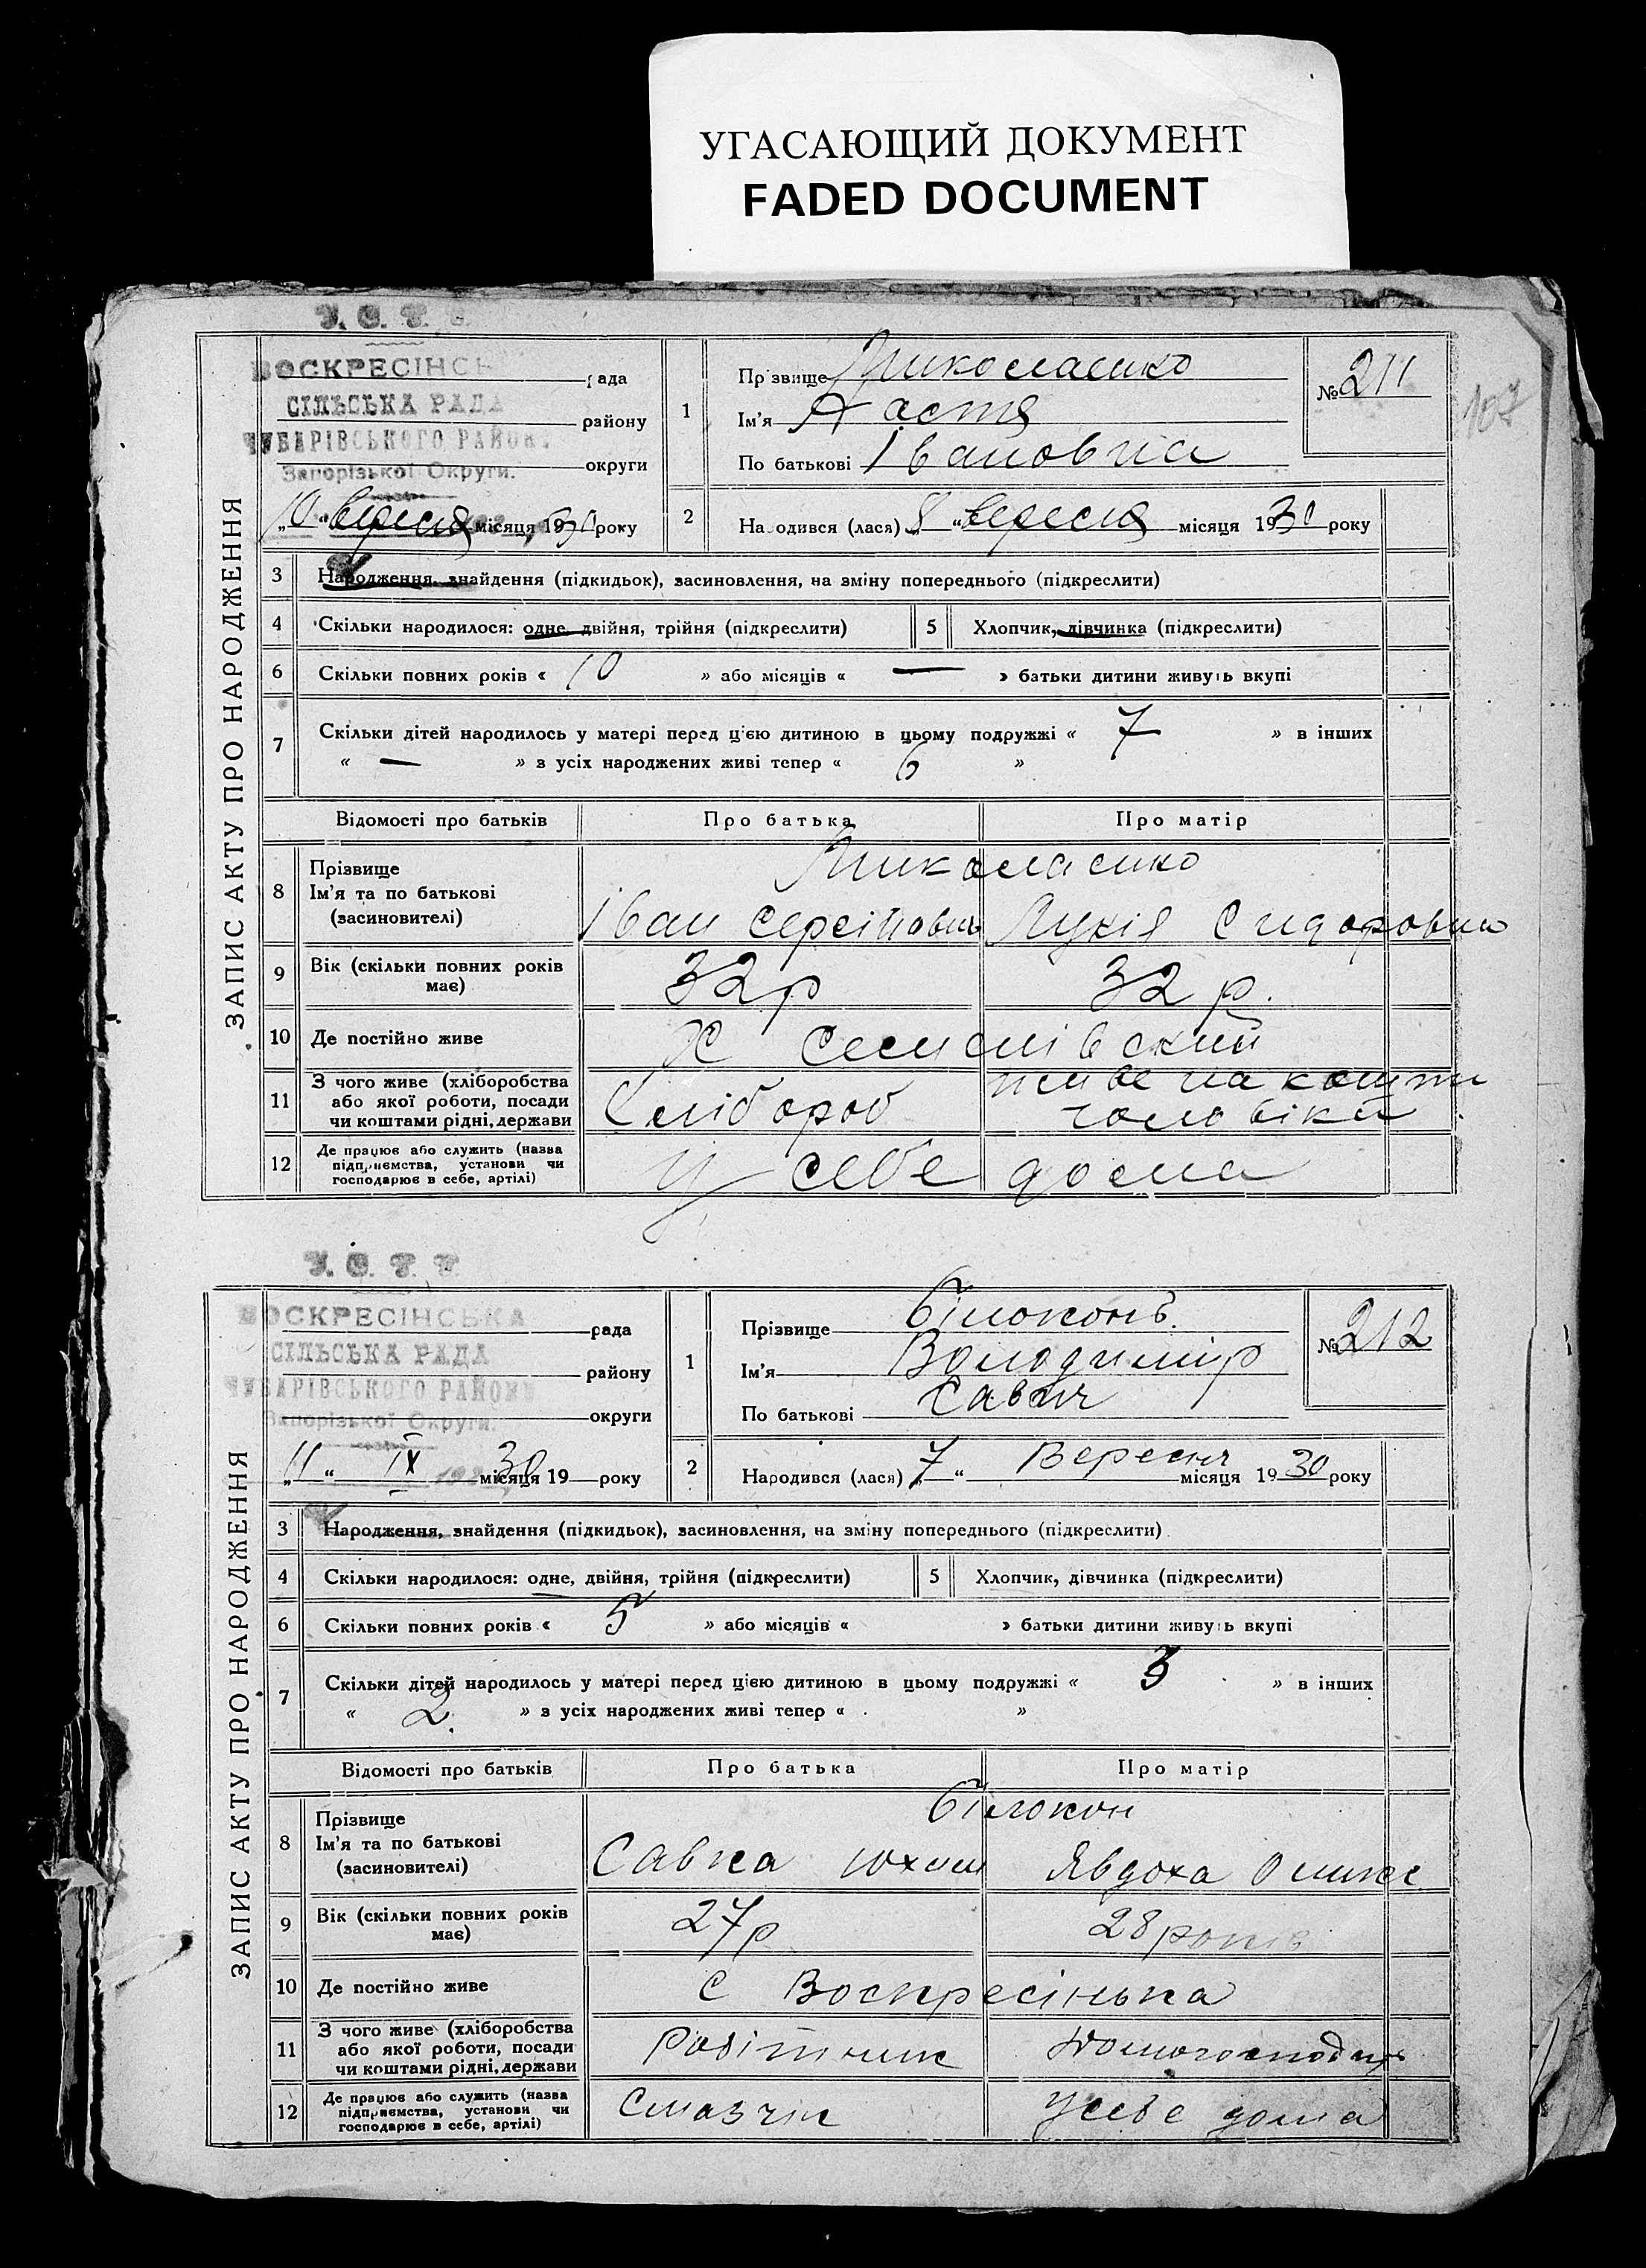 УГАСАЮЩИЙ ДОКУМЕНТ
FADED DOCUMENT
У. С. Р. Р.
ВОСКРЕСІНСЬ
рада
СІЛЬСЬКА РАДА
району
ЧУБАРІВСЬКОГО РАЙОНУ
Запорізької Округи.
округи
„10“ вересня місяця 1930 року
1
Прізвище Миколаенко
Ім'я Настя
По батькові Івановна
№ 211
107
2
Народився (лася) „8“ вересня місяця 1930 року
ЗАПИС АКТУ ПРО НАРОДЖЕННЯ
3 Народження, знайдення (підкидьок), засиновлення, на зміну попереднього (підкреслити)
4 Скільки народилося: одне, двійня, трійня (підкреслити) 5 Хлопчик, дівчинка (підкреслити)
6 Скільки повних років « 10 » або місяців « — » батьки дитини живуть вкупі
7 Скільки дітей народилось у матері перед цією дитиною в цьому подружжі « 7 » в інших
« — » з усіх народжених живі тепер « 6 »
Відомості про батьків Про батька Про матір
8 Прізвище Миколаенко
Ім'я та по батькові
(засиновителі) Іван Лукія Сидоровна
9 Вік (скільки повних років має) 32р 32 р.
10 Де постійно живе Х
11 З чого живе (хліборобства
або якої роботи, посади
чи коштами рідні, держави
Хлібороб живе на кошти
чоловіка
12 Де працює або служить (назва
підприємства, установи чи
господарює в себе, артілі)
У себе дома
У. С. Р. Р.
ВОСКРЕСІНСЬКА
рада
СІЛЬСЬКА РАДА
району
ЧУБАРІВСЬКОГО РАЙОНУ
Запорізької Округи.
округи
„11“ IX 30 місяця 19 року
1
Прізвище Білоконь.
Ім'я Володимір
По батькові Савич
№ 212
2
Народився (лася) „7“ Вересня місяця 1930 року
ЗАПИС АКТУ ПРО НАРОДЖЕННЯ
3 Народження, знайдення (підкидьок), засиновлення, на зміну попереднього (підкреслити)
4 Скільки народилося: одне, двійня, трійня (підкреслити) 5 Хлопчик, дівчинка (підкреслити)
6 Скільки повних років « 5 » або місяців « » батьки дитини живуть вкупі
7 Скільки дітей народилось у матері перед цією дитиною в цьому подружжі « 3 » в інших
« 2. » з усіх народжених живі тепер « »
Відомості про батьків Про батька Про матір
8 Прізвище Білокон
Ім'я та по батькові
(засиновителі) Савка Юхим Явдоха
9 Вік (скільки повних років має) 27р 28 років
10 Де постійно живе С Воскресінька
11 З чого живе (хліборобства
або якої роботи, посади
чи коштами рідні, держави
Робітник
12 Де працює або служить (назва
підприємства, установи чи
господарює в себе, артілі)
Смазчик Усебе дома